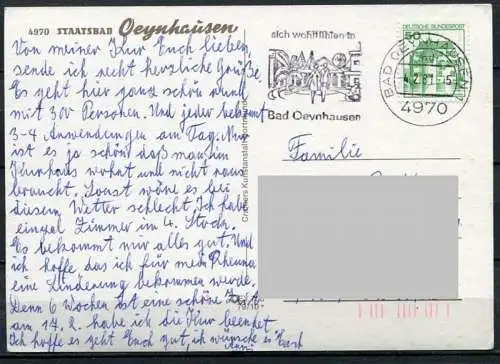 4970 STAATSBAD Oeynhausen
Von meiner Kur Euch lieben,
sende ich recht herzliche Grüße.
Es geht hier ganz schön rund
mit 300 Personen. Und jeder bekommt
3-4 Anwendungen am Tag. Nur
ist es ja schön daß man im
Kurhaus wohnt und nicht raus
braucht. Sonst wäre es bei
diesem Wetter schlecht. Ich habe
einzel Zimmer im 4. Stock.
Es bekommt mir alles gut. Und
ich hoffe das ich für mein Rheuma
eine Linderung bekommen werde.
Denn 6 Wochen ist eine schöne Zeit
am 17. 2. habe ich die Kur beendet
Ich hoffe es geht Euch gut, ich wünsche es Euch
Cramers Kunstanstalt Dortmund
sich wohlfühlen in
Bad Oeynhausen
BAD OEYNHAUSEN 1
-4.2.81-5
4970
50
DEUTSCHE BUNDESPOST
Familie